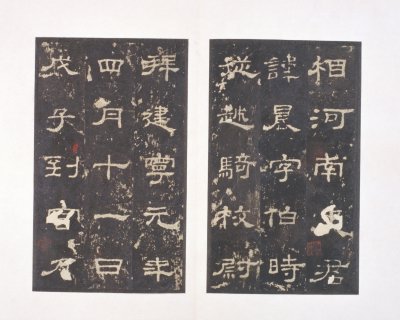 相河南史君
諱晨字伯時
從越騎校尉
拜建寧元年
四月十一日
戊子到官乃